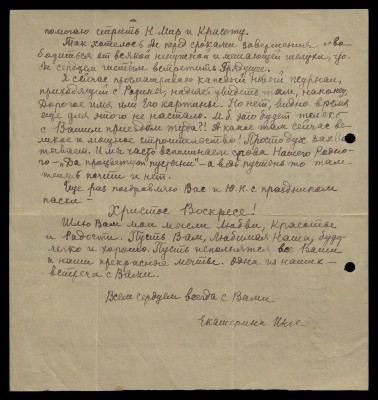 помогаю строить Н. Мир и Красоту.
Так хотелось бы перед сроками завершения осво-
бодиться от всякой ненужной и мешающей шелухи, что-
бы сердцем чистым встретить Грядущее.
Я сейчас просматриваю каждый новый журнал,
приходящий с Родины, надеясь увидеть там, наконец,
Дорогое имя или Его картины. Но нет, видно время
еще для этого не настало. М.б. это будет только
с Вашим приездом туда?! А какое там сейчас ве-
ликое и мощное строительство! Просто дух захва-
тывает. И мы часто вспоминаем слова Нашего Родно-
го — "Да процветут пустыни" — а ведь пустынь-то там
теперь почти и нет.
Еще раз поздравляю Вас и Ю.Н. с праздником
пасхи —
Христос Воскресе!
Шлю Вам мои мысли Любви, Красоты
и Радости. Пусть Вам, Любимая Наша, будет
легко и хорошо. Пусть исполнятся все Ваши
и наши прекрасные мечты. Одна из наших —
встреча с Вами.
Всем сердцем всегда с Вами
Екатерина Инге